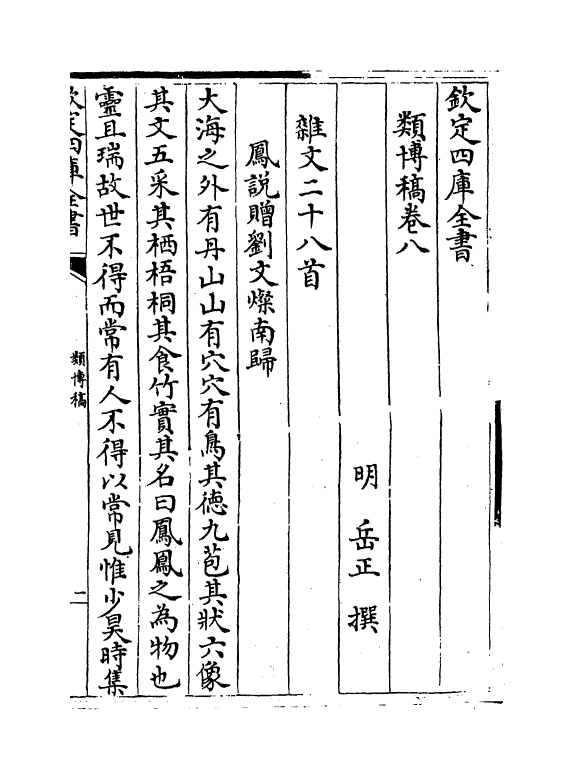 欽定四庫全書
類博稿卷八
明　岳正　撰
雜文二十八首
鳳説贈劉文燦南歸
大海之外有丹山山有穴穴有鳥其德九苞其狀六像
其文五采其栖梧桐其食竹實其名曰鳳鳳之為物也
靈且瑞故世不得而常有人不得以常見惟少昊時集
欽定四庫全書
類博稿